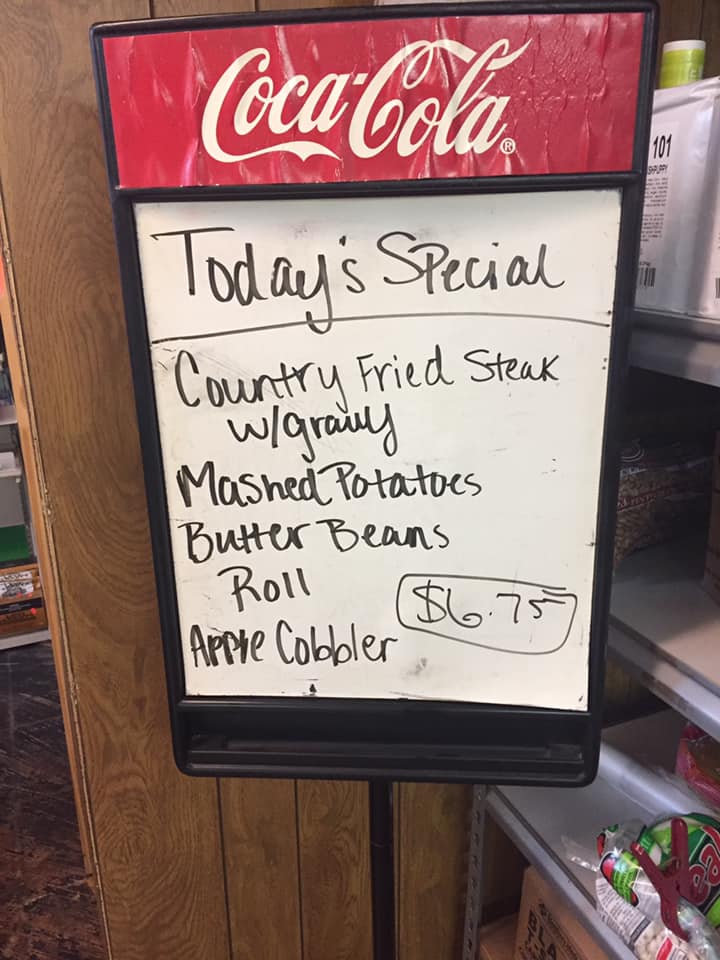 Coca-Cola®
Today's Special
Country Fried Steak
w/gravy
Mashed Potatoes
Butter Beans
Roll
$6.75
Apple Cobbler
101